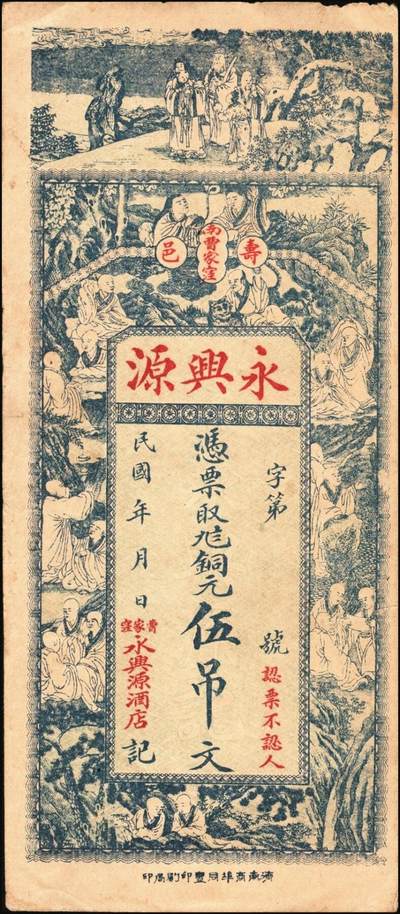 壽
南曹家窪
邑
永興源
字第 號
認票不認人
憑票取兌銅元伍吊文
民國 年 月 日
曹家窪
永興源酒店
記
濟南商埠同豐印刷局印